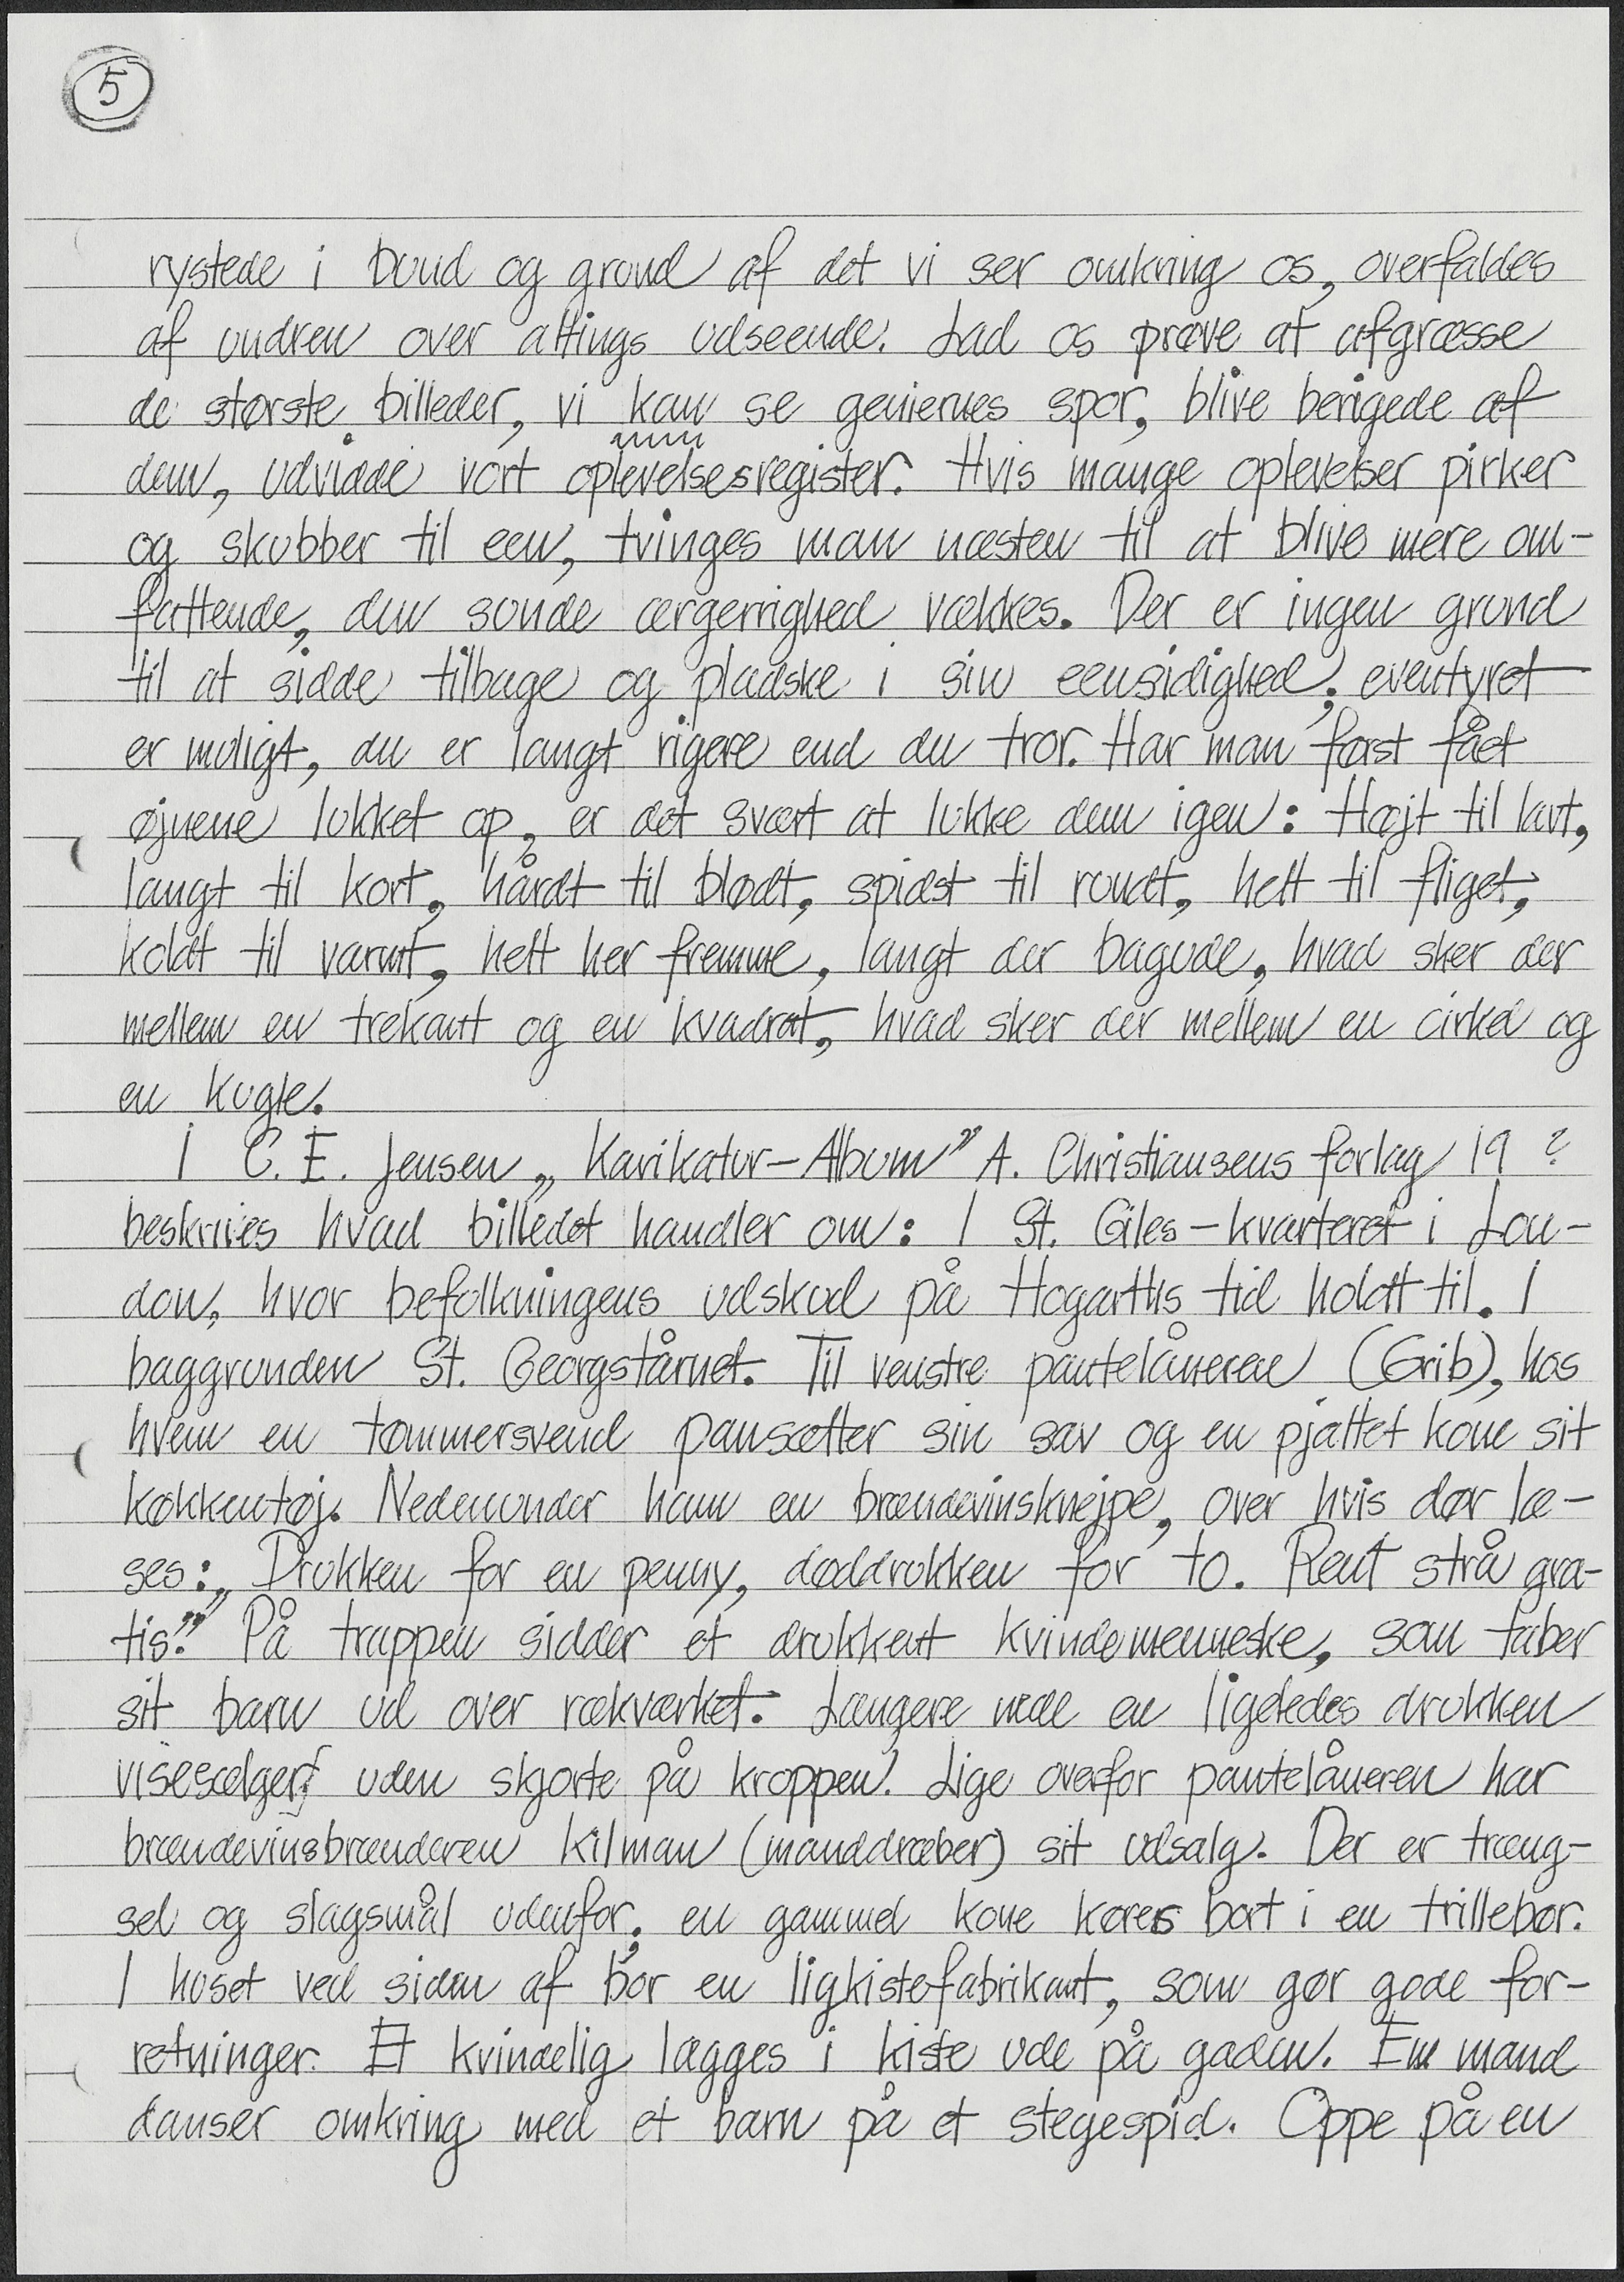 5
rystede i bund og grund af det vi ser omkring os, overfaldes
af undren over altings udseende. Lad os prøve at afgræsse
de største billeder, vi kan se geniernes spor, blive berigede af
dem, udvidde vort oplevelsesregister. Hvis mange oplevelser pirker
og skubber til een, tvinges man næsten til at blive mere om-
fattende, den sunde ærgerrighed vækkes. Der er ingen grund
til at sidde tilbage og pladske i sin eensidighed; eventyret
er muligt, du er langt rigere end du tror. Har man først fået
øjnene lukket op, er det svært at lukke dem igen: Højt til lavt,
langt til kort, hårdt til blødt, spidst til rundt, helt til fliget,
koldt til varmt, helt her fremme, langt der bagude, hvad sker der
mellem en trekant og en kvadrat, hvad sker der mellem en cirkel og
en kugle.
I C. E. Jensen „Karikatur-Album” A. Christiansens forlag 19 ?
beskrives hvad billedet handler om: I St. Giles-kvarteret i Lon-
don, hvor befolkningens udskud på Hogarths tid holdt til. I
baggrunden St. Georgstårnet. Til venstre pantelåneren (Grib), hos
hvem en tømmersvend pansætter sin sav og en pjaltet kone sit
køkkentøj. Nedenunder ham en brændevinsknejpe, over hvis dør læ-
ses: „Drukken for en penny, døddrukken for to. Rent strå gra-
tis.” På trappen sidder et drukkent kvindemenneske, som taber
sit barn ud over rækværket. Længere nede en ligeledes drukken
visesælger uden skjorte på kroppen. Lige overfor pantelåneren har
brændevinsbrænderen Kilman (manddræber) sit udsalg. Der er træng-
sel og slagsmål udenfor; en gammel kone køres bort i en trillebør.
I huset ved siden af bor en ligkistefabrikant, som gør gode for-
retninger. Et kvindelig lægges i kiste ude på gaden. En mand
danser omkring med et barn på et stegespid. Oppe på en